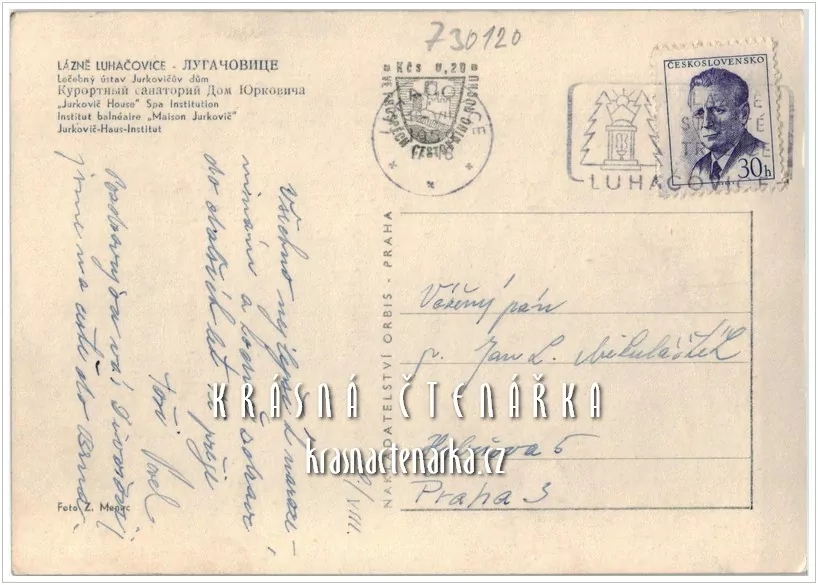 730120
LÁZNĚ LUHAČOVICE - ЛУГАЧОВИЦЕ
Léčebný ústav Jurkovičův dům
Курортный санаторий Дом Юрковича
„Jurkovič House" Spa Institution
Institut balnéaire „Maison Jurkovič"
Jurkovič-Haus-Institut
Kčs 0,20
VE PROSPĚCH CESTOVNÍHO RUCHU
ČESKOSLOVENSKO
30h
LUHAČOVICE
Všechno nejlepší k naroze-
ninám a hodně zdraví
do dalších let Ti přeje
Jiří Pavel
Pozdravy
jsme na cestě do Brna
/VIII.
NAKLADATELSTVÍ ORBIS - PRAHA
Vážený pán
p. Jan L. Mikulášek
5
Praha 3
KRÁSNÁ ČTENÁŘKA
krasnactenarka.cz
Foto Z. Menec